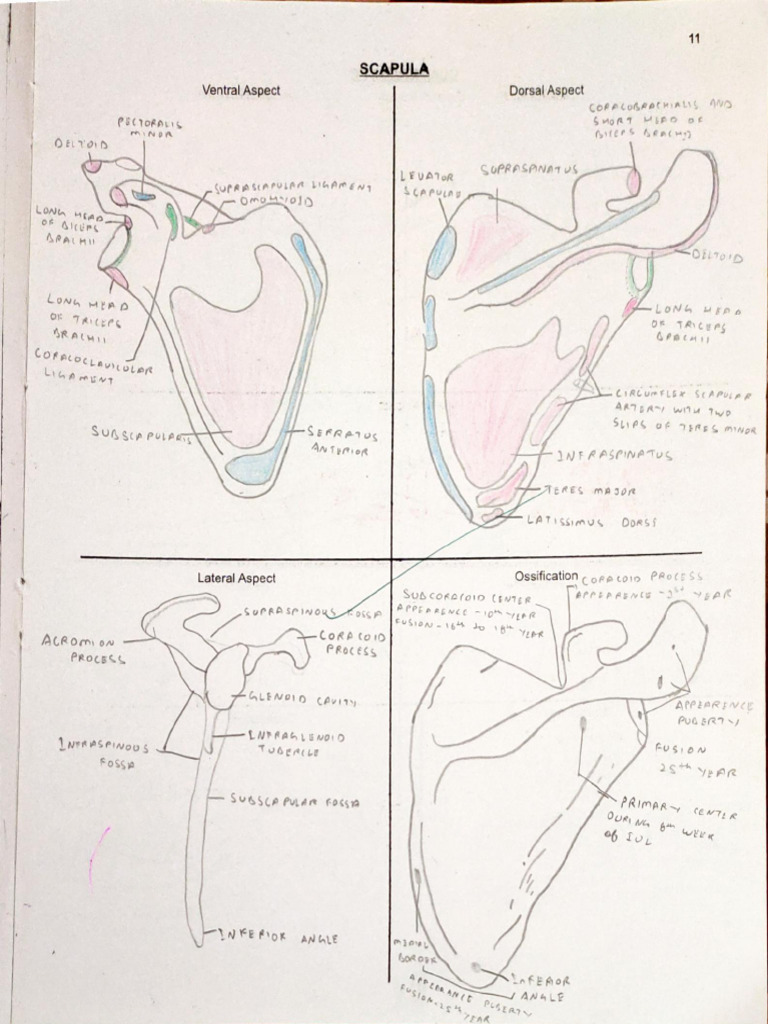 11
SCAPULA
Ventral Aspect
PECTORALIS
MINOR
DELTOID
SUPRASCAPULAR LIGAMENT
OMOHYOID
LONG HEAD
OF BICEPS
BRACHII
LONG HEAD
OF TRICEPS
BRACHII
CORACOCLAVICULAR
LIGAMENT
SUBSCAPULARIS
SERRATUS
ANTERIOR
Dorsal Aspect
CORACOBRACHIALIS AND
SHORT HEAD OF
BICEPS BRACHII
LEVATOR
SCAPULAE
SUPRASPINATUS
DELTOID
LONG HEAD
OF TRICEPS
BRACHII
CIRCUMFLEX SCAPULAR
ARTERY WITH TWO
SLIPS OF TERES MINOR
INFRASPINATUS
TERES MAJOR
LATISSIMUS DORSI
Lateral Aspect
SUPRASPINOUS FOSSA
ACROMION
PROCESS
CORACOID
PROCESS
GLENOID CAVITY
INFRASPINOUS
FOSSA
INFRAGLENOID
TUBERCLE
SUBSCAPULAR FOSSA
INFERIOR ANGLE
Ossification
CORACOID PROCESS
APPEARENCE - 1st YEAR
SUBCORACOID CENTER
APPEARENCE - 10th YEAR
FUSION - 16th TO 18th YEAR
APPEARENCE
PUBERTY
FUSION
25th YEAR
PRIMARY CENTER
DURING 8th WEEK
of IUL
BORDER
INFERIOR
ANGLE
APPEARENCE PUBERTY
FUSION - 25th YEAR